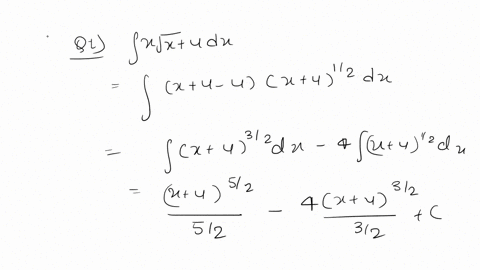 Q1) ∫x√x+4 dx
= ∫ (x+4-4) (x+4)^1/2 dx
= ∫(x+4)^3/2 dx - 4 ∫(x+4)^1/2 dx
= (x+4)^5/2 / 5/2 - 4(x+4)^3/2 / 3/2 + C